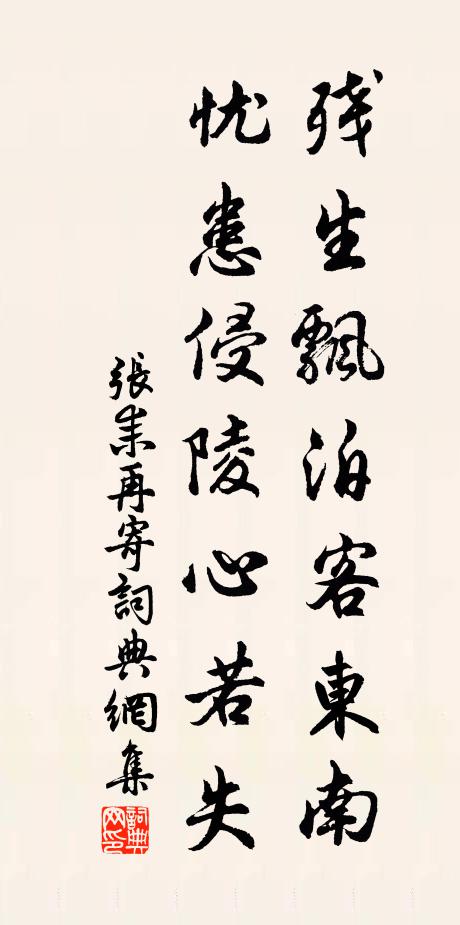 残生飄泊客東南
忧患侵陵心若失
張耒再寄詞典網集
詞典网印